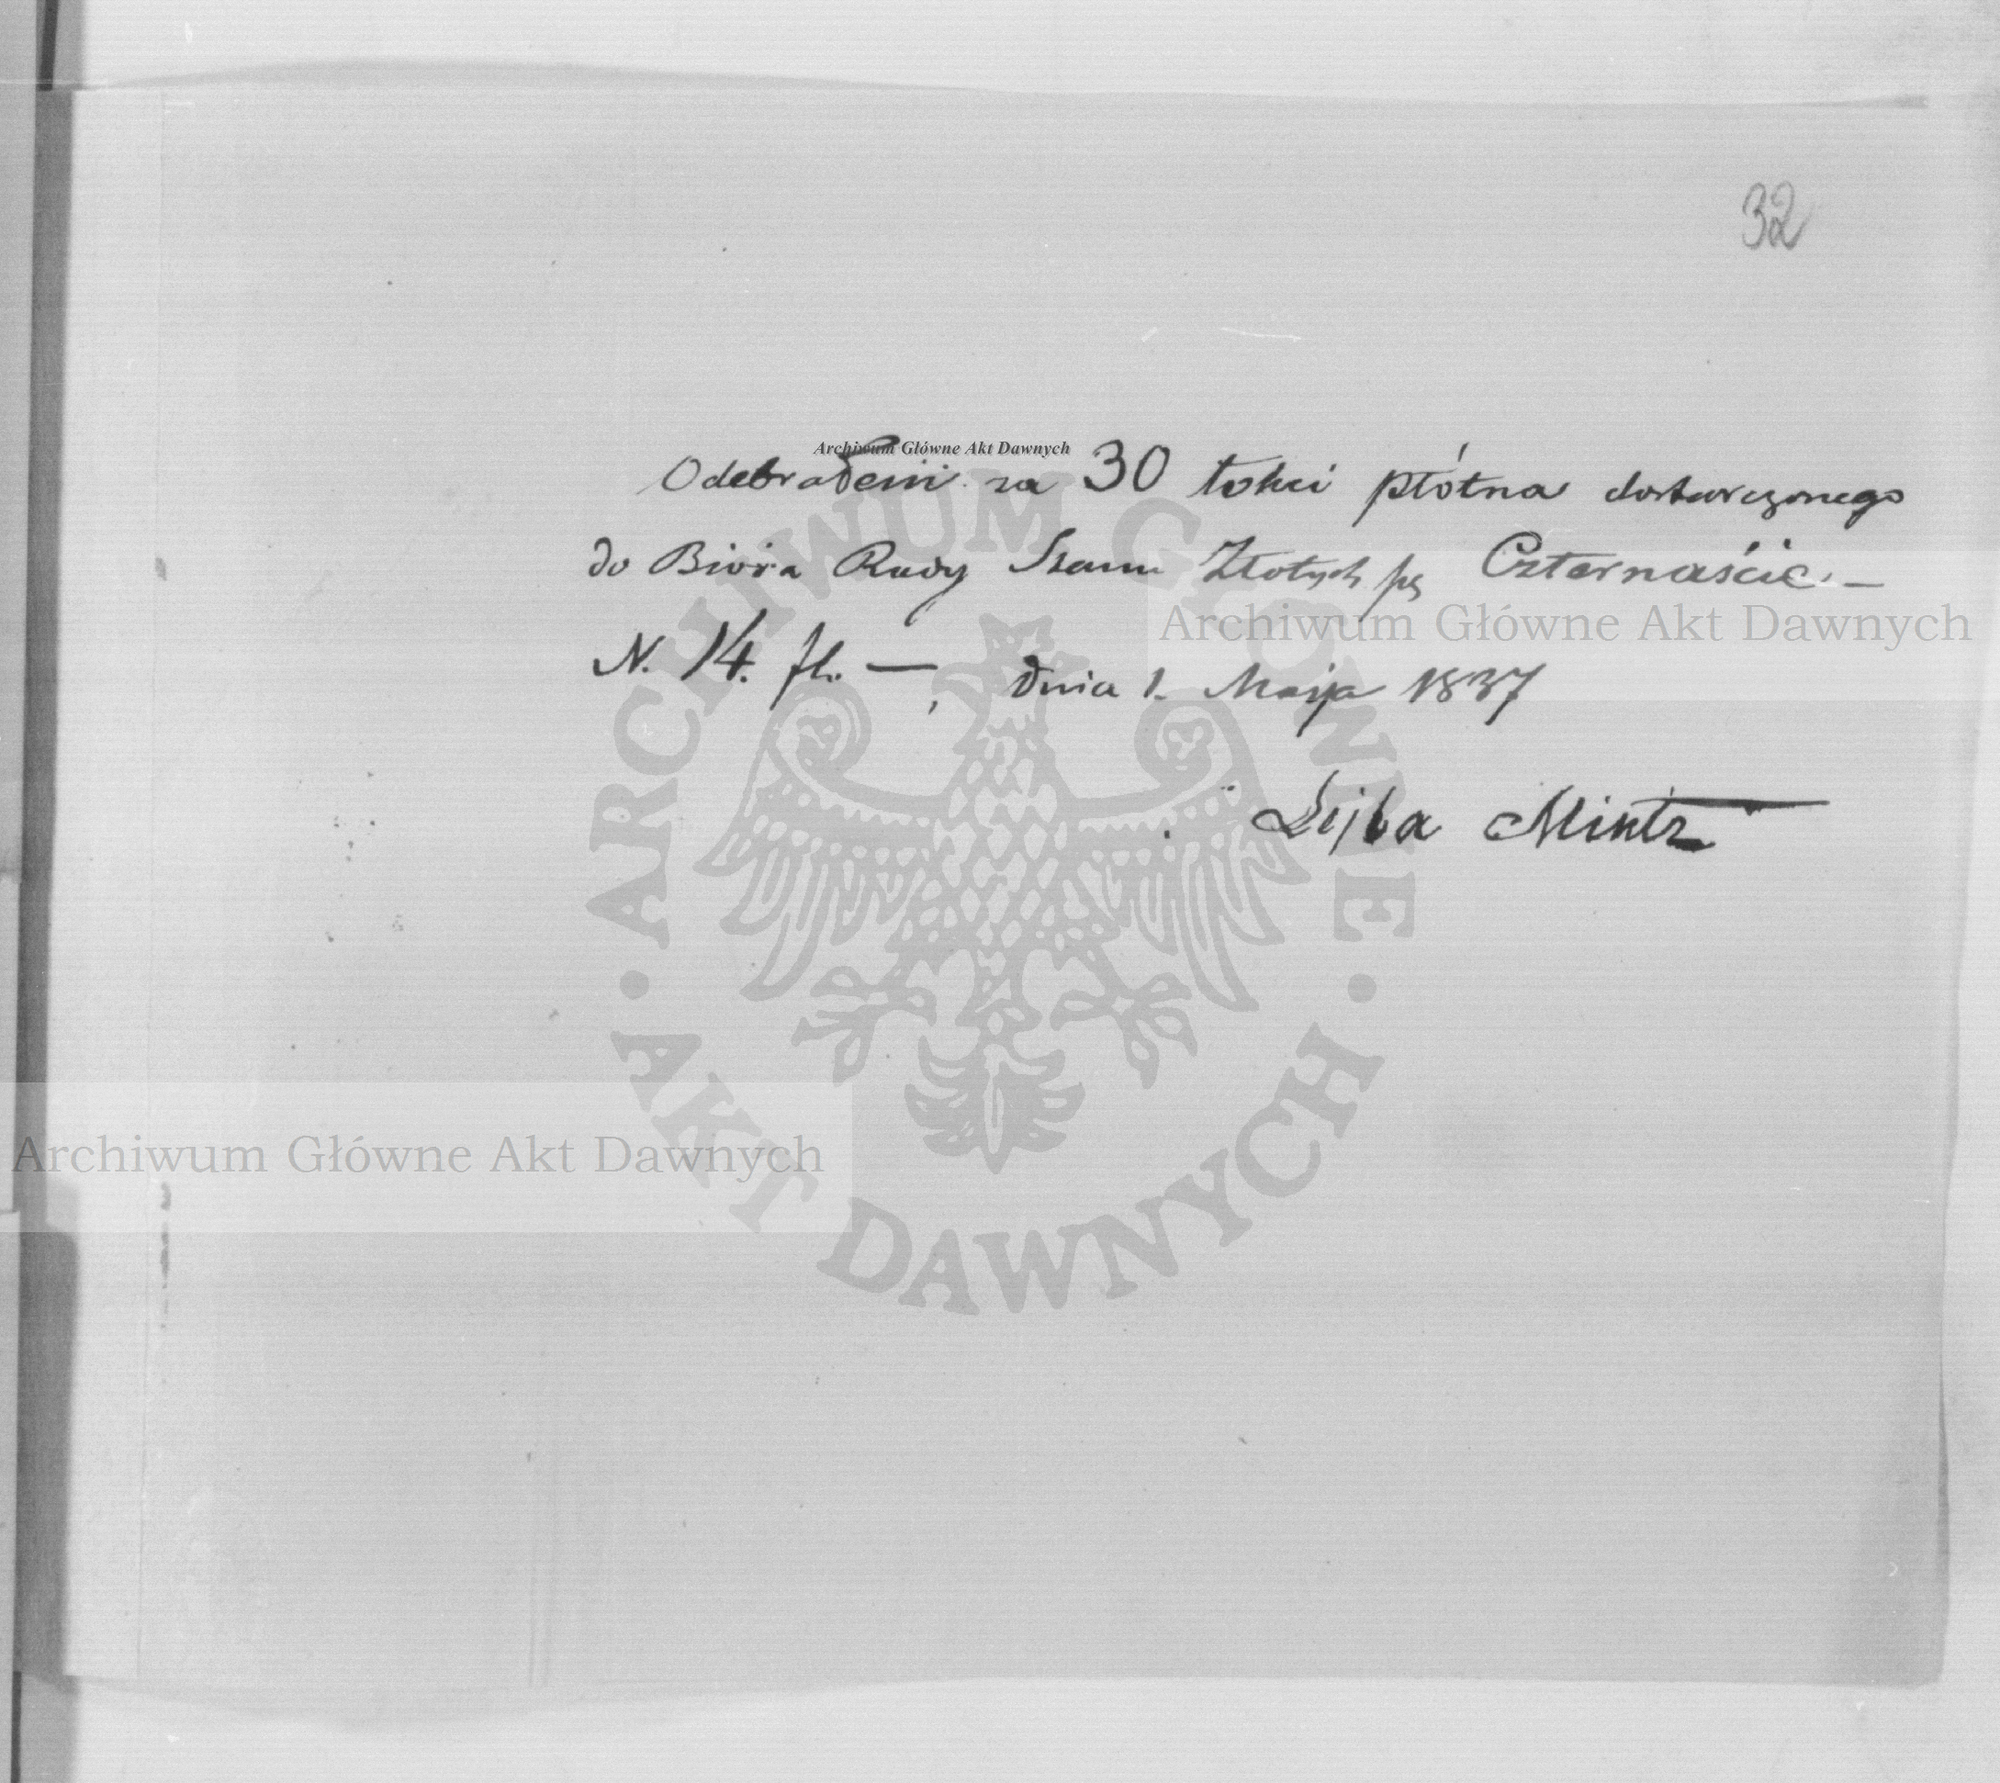 32
Archiwum Główne Akt Dawnych
Odebrałem za 30 łokci płótna dostarczonego
do Bióra Rady Stanu Złotych pg Czternaście. —
Archiwum Główne Akt Dawnych
N. 14. fl. —, dnia 1. Maja 1837
Lejba Mintz
ARCHIWUM GŁÓWNE • AKT DAWNYCH •
Archiwum Główne Akt Dawnych